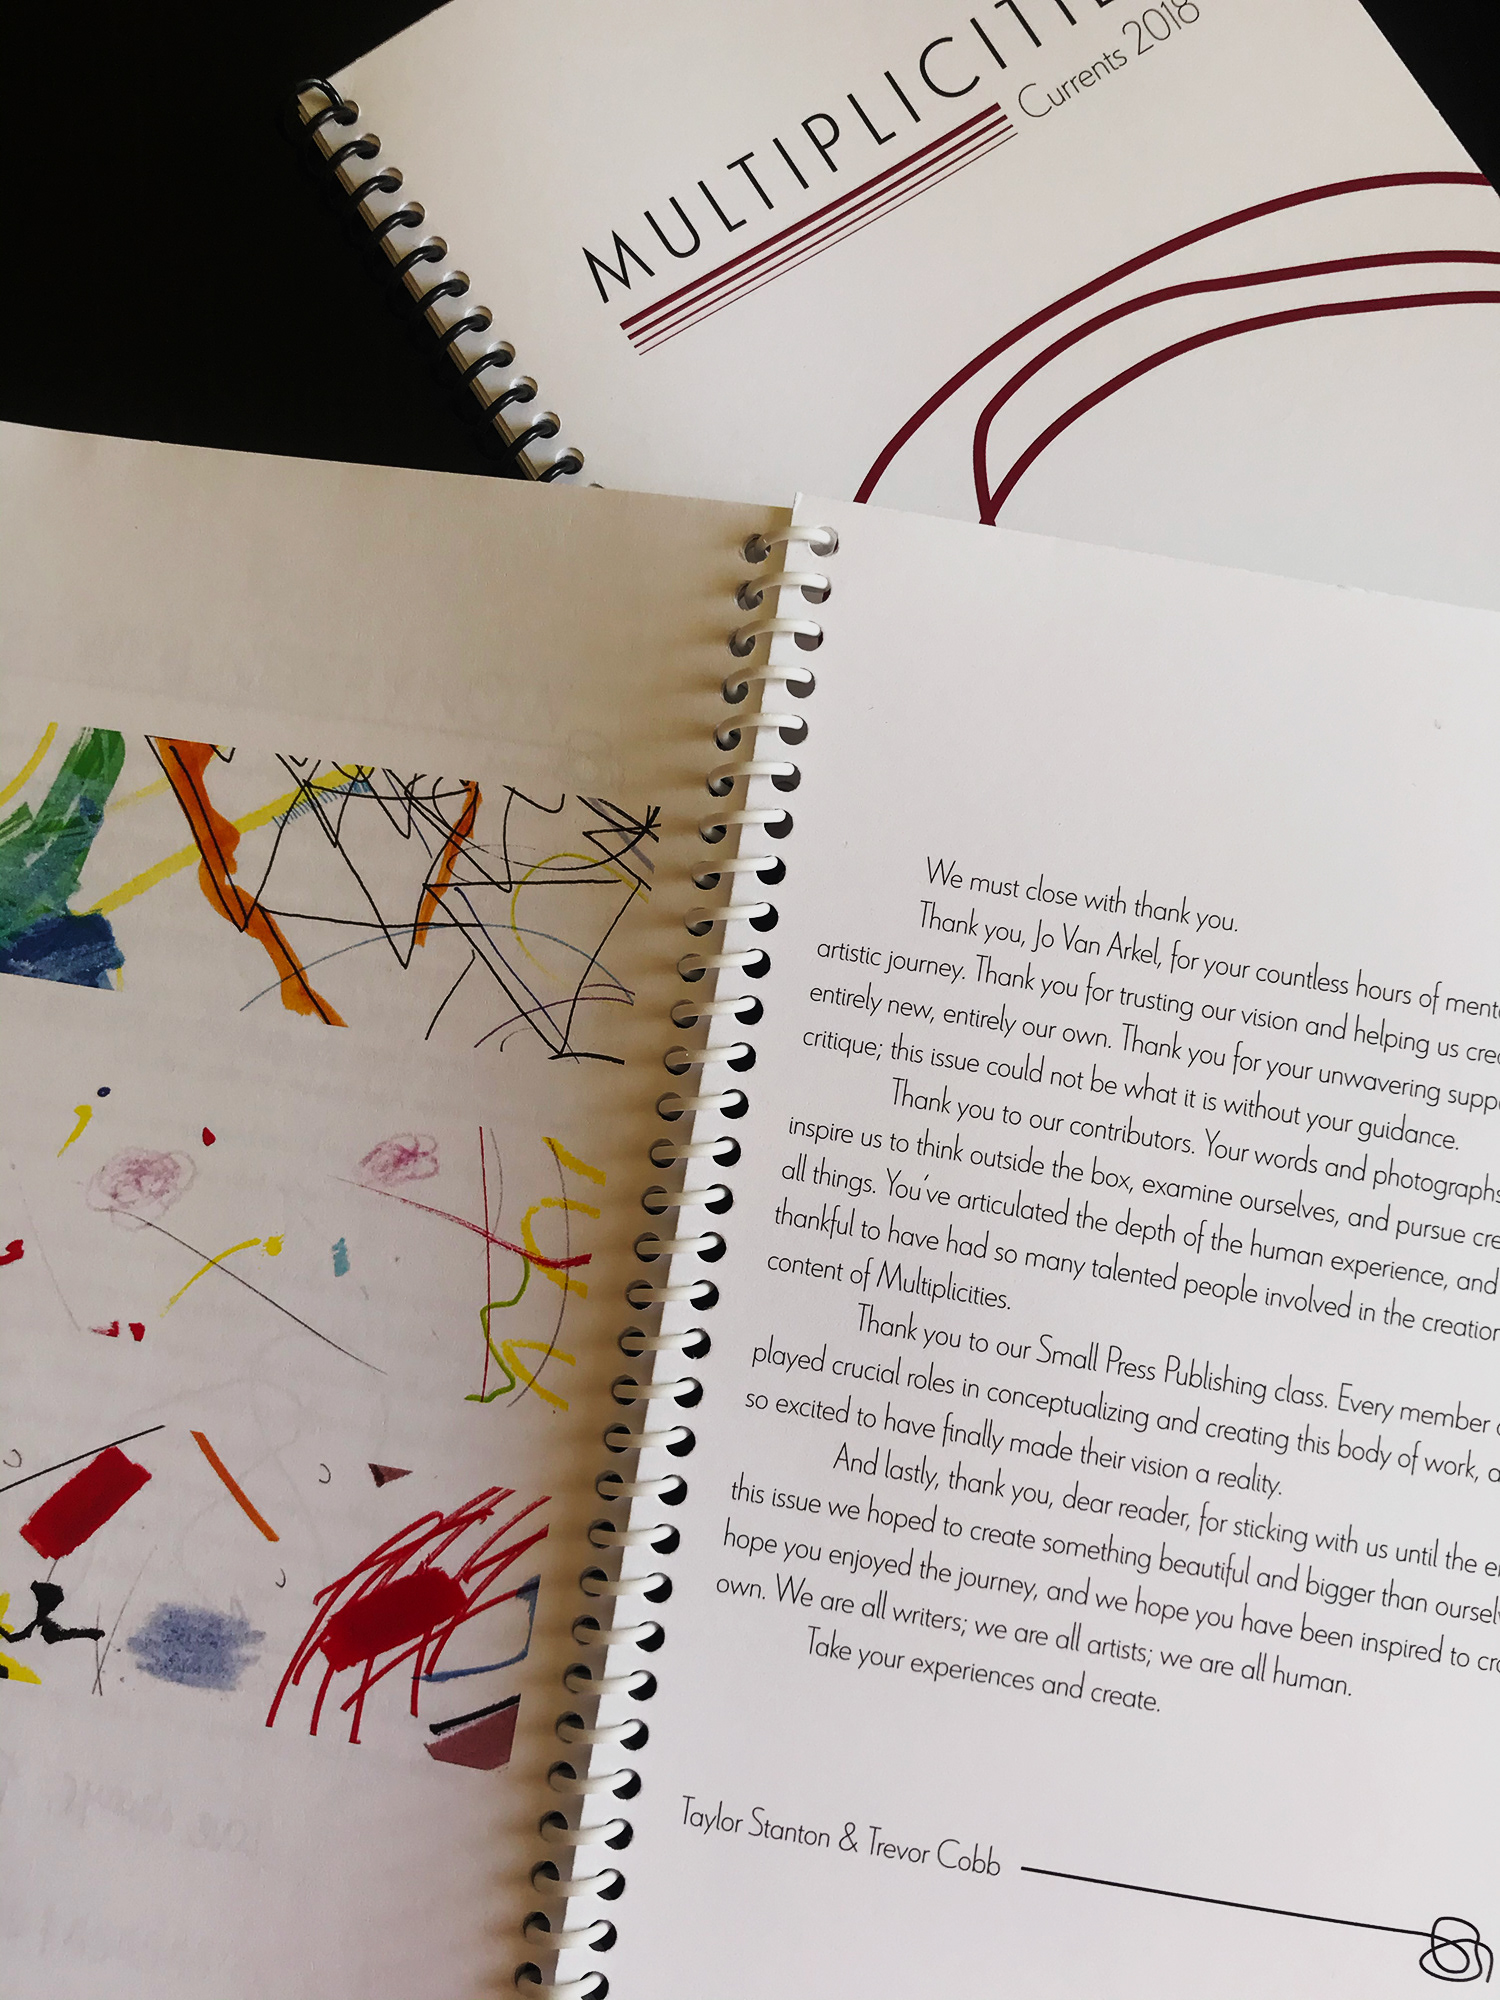 MULTIPLICITIE
Currents 2018
We must close with thank you.
Thank you, Jo Van Arkel, for your countless hours of
artistic journey. Thank you for trusting our vision and helping us
entirely new, entirely our own. Thank you for your unwavering
critique; this issue could not be what it is without your guidance.
Thank you to our contributors. Your words and photographs
inspire us to think outside the box, examine ourselves, and pursue
all things. You've articulated the depth of the human experience, and
thankful to have had so many talented people involved in the creation
content of Multiplicities.
Thank you to our Small Press Publishing class. Every member
played crucial roles in conceptualizing and creating this body of work,
so excited to have finally made their vision a reality.
And lastly, thank you, dear reader, for sticking with us until the
this issue we hoped to create something beautiful and bigger than
hope you enjoyed the journey, and we hope you have been inspired to
own. We are all writers; we are all artists; we are all human.
Take your experiences and create.
Taylor Stanton & Trevor Cobb